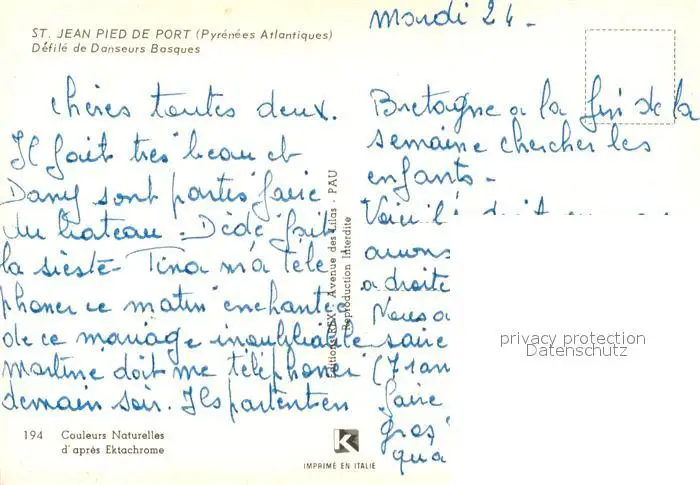 ST. JEAN PIED DE PORT (Pyrénées Atlantiques)
Défilé de Danseurs Basques
mardi 24 -
chères toutes deux.
Il fait très beau et
Dany sont partis faire
du bateau. Dédé fait
la sieste - Tina m'a télé
phoner ce matin enchantée
de ce mariage inoubliable
martine doit me téléphoner
demain soir. Ils partent en
Bretagne a la fin de la
semaine chercher les
enfants -
Voici
avons
a droite
Nous a
faire
gros
qua
Editions REX, Avenue des Lilas - PAU
Reproduction Interdite
194 Couleurs Naturelles
d'après Ektachrome
K
IMPRIMÉ EN ITALIE
privacy protection
Datenschutz